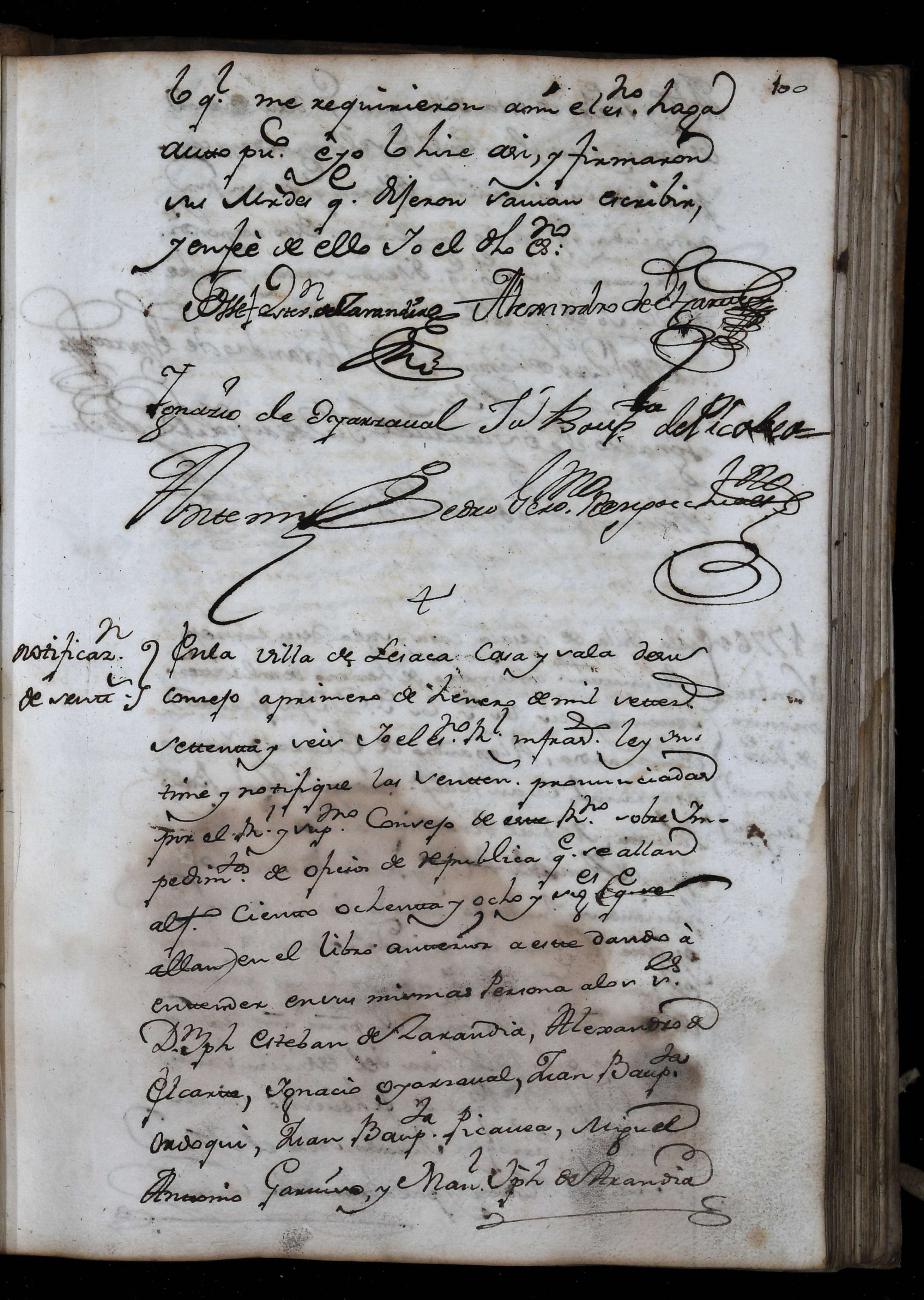 100
lo q.l me requirieron a mi el es.no haga
autto pu.co e yo lo hice asi, y firmaron
sus Mrdes q.e dijeron savian escribir,
y en fee de ello Yo el dho es.no
Josef Estev.n de Larandia Alexandro de Elzaurte
Ygnazio de Oyarzaval Ju.n Baup.ta de Picabea
Antemi Pedro
notificaz.n
de sentt.s
En la villa de Lesaca Casa y sala de su
consejo a primero de henero de mil settez.s
settenta y seis Yo el es.no R.l infrasc. ley ins
timé y notifique las senten.s pronunciadas
por el R.l y sup.mo Consejo de este R.no sobre Ym-
pedim.tos de oficios de republica q.e se allan
al f.o Ciento ochenta y ocho y sig.es (que se
allan) en el libro anterior a este dando à
entender en sus mismas Persona a los s.res
D.n Jph Esteban de Larandia, Alexandro de
Elzarte, Ignacio oyarzaval, Juan Baup.ta
Ordoqui, Juan Baup.ta Picavea, Miguel
Antonio Garmuro, y Man.l Jph de Arandia